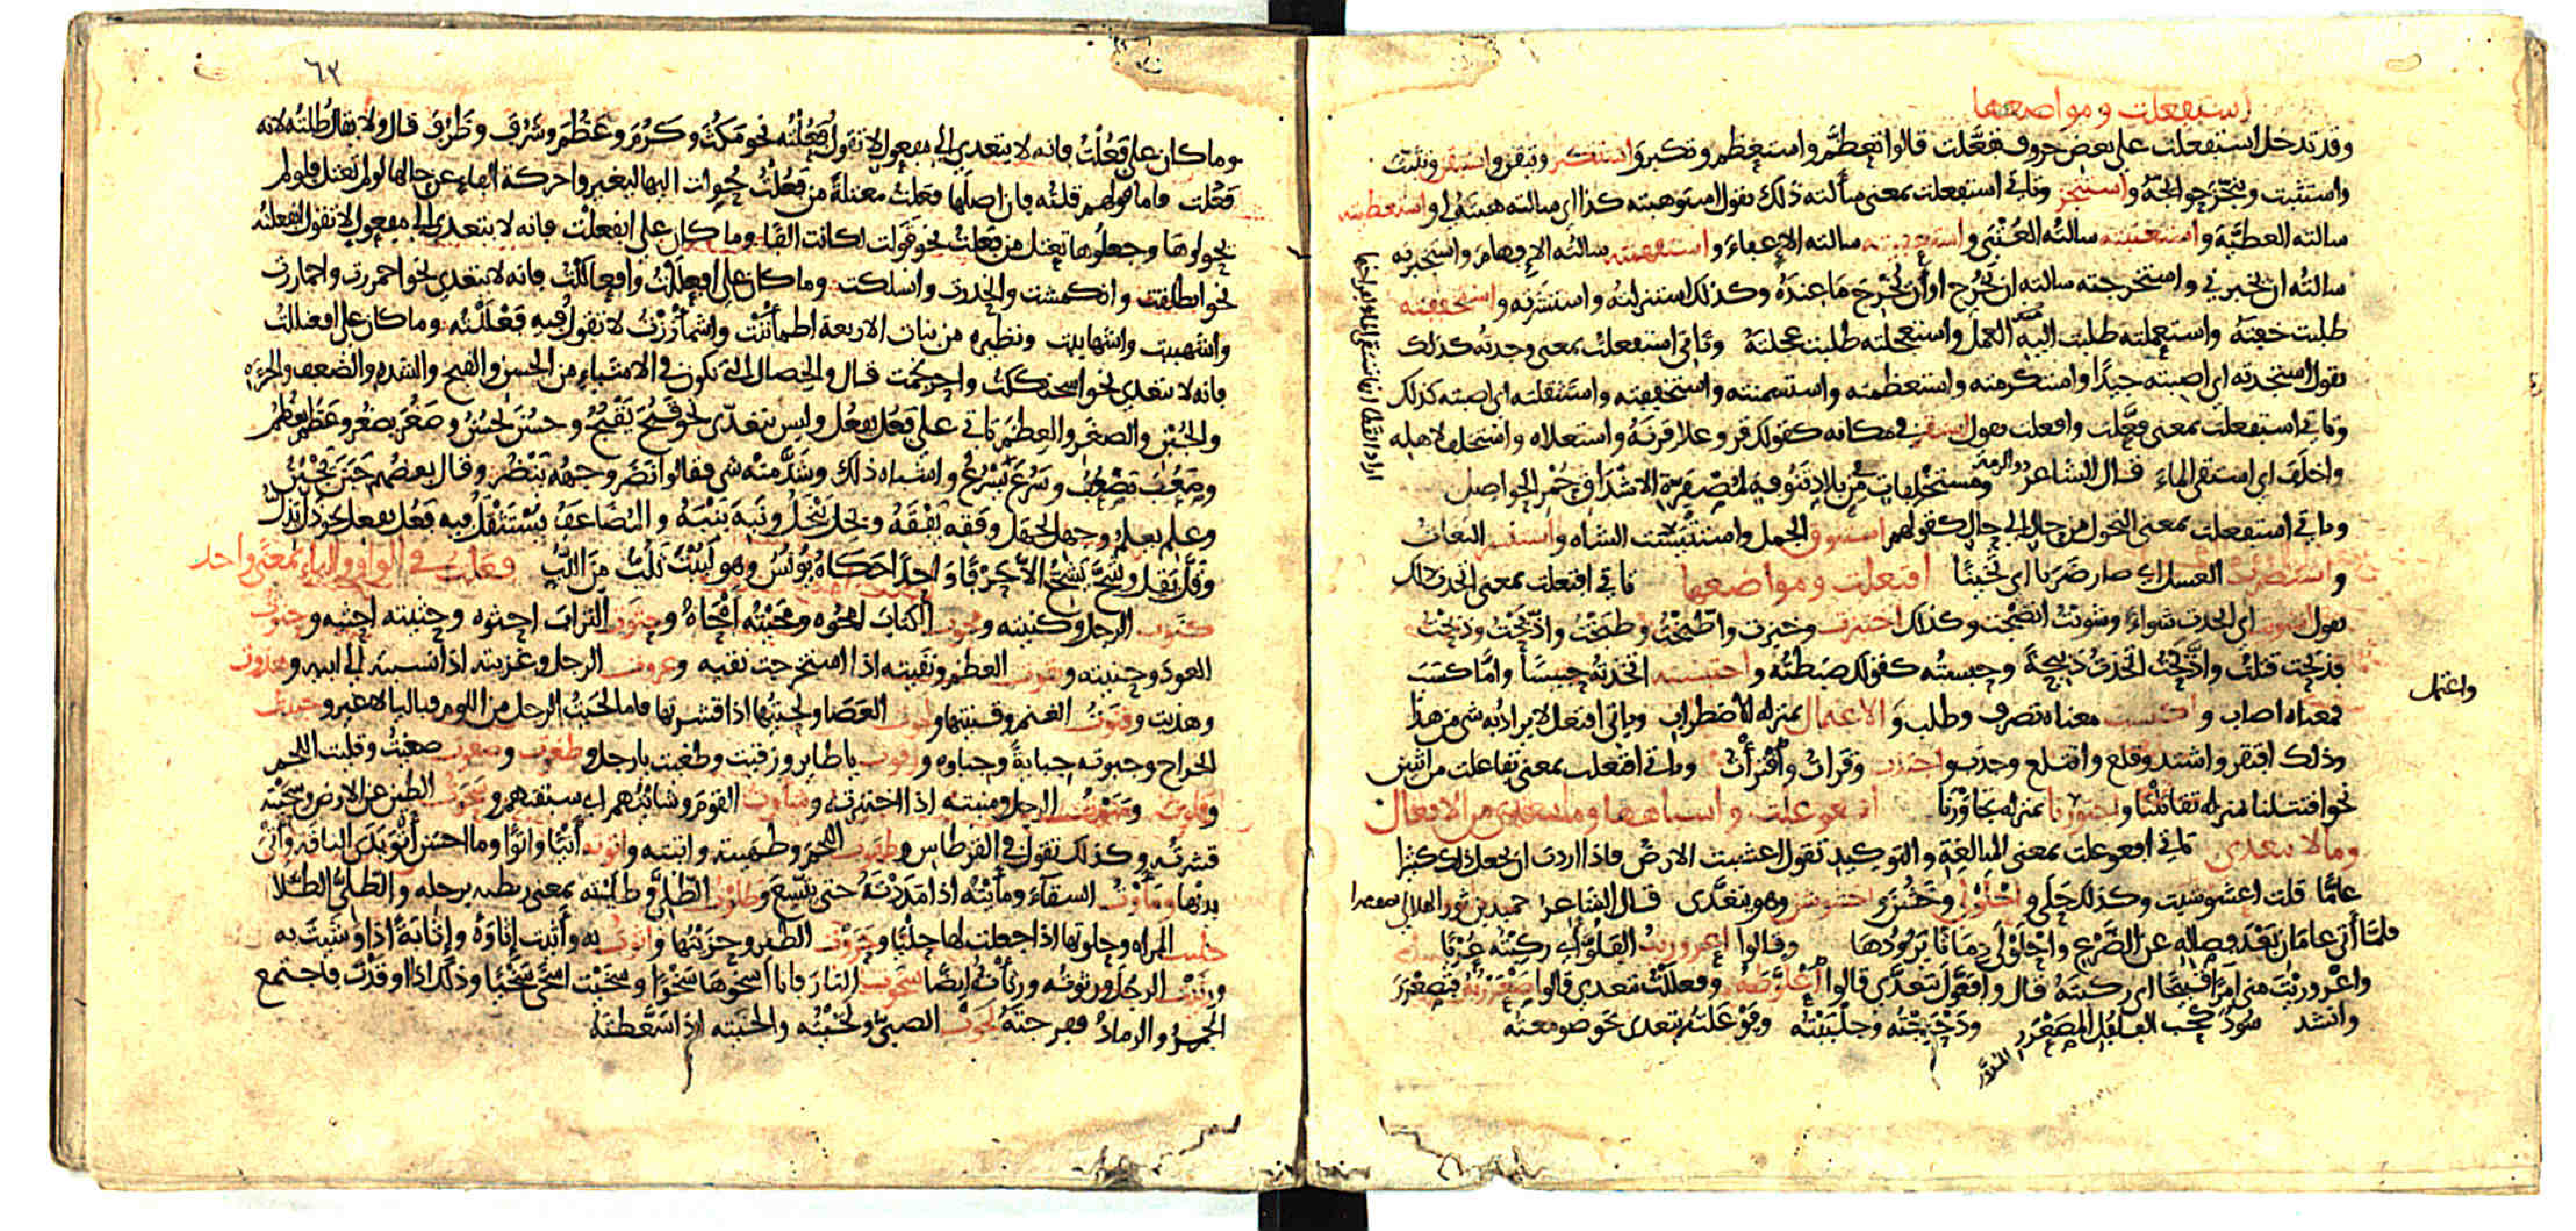 استفعلت ومواضعها
وقد تدخل استفعلت على بعض حروف تفعّلت قالوا تعظّم واستعظم وتكبر واستكبر وتيقن واستيقن وتثبت
واستثبت وتنجّز حوائجه واستنجز وتاتي استفعلت بمعنى سألته ذلك تقول استوهبته كذا اي سالته هبته لي واستعطيته
سالته العطيّة واستعتبته سالته العُتْبى واستعفيته سالته الإعفاء واستفهمته سالته الإفهام واستخبرته
سالته ان يخبرني واستخرجته سالته ان يَخْرُج او أن يُخْرِج ما عنده وكذلك استنزلته واستبشرته واستخففته
طلبت خفته واستعملته طلبت اليه العمل واستعجلته طلبت عجلته وتاتي استفعلت بمعنى وجدته كذلك
تقول استجدته اي اصبته جيدًا واستكرمته واستعظمته واستسمنته واستخففته واستثقلته اي اصبته كذلك
وتاتي استفعلت بمعنى فعَلت وافعلت تقول استقر في مكانه كقولك قر وعلا قرنه واستعلاه واستخلف لاهله
واخلَف اي استقى الماء قال الشاعر ذو الرمة ومستخلفات من بلاد تنوفة لمصفرة الاشداق حُمْر الحواصل
وتاتي استفعلت بمعنى التحول من حال الى حال كقولهم استنوق الجمل واستتيست الشاه واستنسر البغاث
واستضرب العسل اي صار ضَرَبا اي ثخينًا افتعلت ومواضعها تاتي افتعلت بمعنى اتخذت ذلك
تقول اشتويت اي اتخذت شواءً وشويت انضجت وكذلك اختبزت وخبزت واطّبخت وطبخت واذّبحت وذبحت
فذبحت قتلت واذّبحت اتخذت ذبيحة وحبسته كقولك ضبطته واحتبسته اتخذته حبيسًا وامّا كسَبَ
فمعناه اصاب واكتسب معناه تصرف وطلب والاعتمال بمنزلة الاضطراب وياتي افتعل لا يراد به شي من هذا
واعتمل
وذلك افتقر واشتد وقلع واقتلع وجذب واجتذب وقرات واقترأت وتاتي افتعلت بمعنى تفاعلت من اثنين
نحو اقتتلنا بمنزلة تقاتلنا واجتورنا بمنزلة تجاورنا افعوعلت واشباهها وما يتعدى من الافعال
وما لا يتعدى تاتي افعوعلت بمعنى المبالغة والتوكيد تقول اعشبت الارض فاذا اردت ان تجعل ذلك كثيرا
عامًا قلت اعشوشبت وكذلك حَلى واحْلَوْلى وخَشُن واخشوشن وهو يتعدى قال الشاعر حميد بن ثور الهلالي
فلمّا أتى عامان بعد فصاله عن الضّرع واحْلَوْلى دِمَاثًا يَرُودُها وقالوا اعروريت الفلُوّ اي ركبته عُرْيًا
واعْرَوريْتَ مني امرًا قبيحًا اي ركبته قال وافعوّل يتعدّى قالوا اعْلوّطَه وفعللت تتعدى قالوا صَعْرَرْته فتصعْرَرَ
وانشد سُودٌ كحب الفلفل المصعْرَر ودحرجته وجلببته وفوْعَلته يتعدى نحو صومعته
المدوّر
٦٣
وما كان على فَعُلْتُ فانه لا يتعدى الى مفعول لا تقول فَعُلْتُه نحو مَكُثَ وكَرُمَ وعَظُم وشَرُف وظَرُف قال ولا يقال طُلتُه لانه
فَعُلت فاما قولهم قلته فان اصلها فعَلت معتلة من فعُلت حوّلت اليها ليغيروا حركة الفاء عن حالها لو لم تعتل فلو لم
يحولوها وجعلوها تعتل من فعَلت نحو قَوَلت لكانت القا وما كان على انفعلت فانه لا يتعدى الى مفعول لا تقول انفعلته
نحو انطلقت وانكمشت وانحدرت وانسلكت وما كان على افعلَلْتُ وافعالَلْتُ فانه لا يتعدى نحو احمررت واحماررت
واشهببت واشهاببت ونظيره من بنات الاربعة اطمأنَنْت واشمأزَزْت لا تقول فيه فَعْلَلْتُه وما كان على افعنللت
فانه لا يتعدى نحو اسحنككت واحرنجمت قال والخصال التي تكون في الاشياء من الحسن والقبح والشدة والضعف والجرءة
والجُبْن والصغَر والعِظَم تاتي على فَعُل يفعُل وليس يتعدّى نحو قَبُحَ يَقْبُحُ وحسُنَ يحْسُنُ وصَغُر يصغُر وعَظُم يعظُم
وضَعُفَ يَضْعُفُ وسَرُعَ يَسْرُعُ واشباه ذلك وشَذّ منه شي فقالوا نَضَر وجهُه يَنْضُر وقال بعضهم جَبَنَ يَجْبُنُ
وعلم يعلم وجهل يجهل وفقه يَفْقَهُ وبخل يَبْخَلُ ونَبِهَ يَنْبَهُ والمضاعَفُ يُسْتَثْقَلُ فيه فَعُل يفعل نحو ذلّ يَذِلُّ
وقلّ يَقِل وشحّ يَشِحُّ الا حرفًا واحِدًا حَكاهُ يونس وهو لَبُبْتَ تَلُبُّ مِنَ اللّبّ فعلت في الواو والياء بمعنى واحد
كنوت الرجل وكنيته ومحوت الكتابَ امحوه ومَحَيْتُه أمْحَاهُ وحثوت التراب احثوه وحثيته احثيه وحنوت
العود وحنيته ونقوت العظم ونقيته اذا استخرجت نقيه وعزوت الرجل وعزيته اذا نسبته الى ابيه وهذوت
وهذيت وقنوت الغنم وقنيتها ولحوت العَصَا ولحيتها اذا قشرتها فاما لحَيْتُ الرجل من اللوم فبالياء لا غير وجبيت
الخراج وجبوته جبايةً وجباوة وزقوت يا طاير وزقيت وطغيت يا رجل وطغوت وصغوت وصغيت وقليت اللحم
وقلوته ومَنَوْت الرجل ومنيته اذا اختبرته وشأوت القومَ وشأيتهم اي سبقتهم وسَحَوْت الطين عن الارض وسحَيْته
قشرته وكذلك تقول في القرطاس وطهوت اللحم وطهيته واتيته واتوته أتْيًا واتوًا وما احسن أتْوَ يَدَي الناقة وأتْيَ
يديها ومأوْت السقاء ومأَيْتُه اذا مَدَدْتَهُ حتى يتّسِعَ وطلَوْت الطّلا وطليته بمعنى ربطته برجله والطّليّ الطّلا
حليت المراه وحلوتها اذا جعلت لها حلْيًا وحَزَوْت الطير وحزيتها وأثوت به وأثيت إثاوَةً وإثايَةً اذا وَشَيتَ به
ورَثَيْت الرجل ورثوته ورثأت ايضًا سخوت النار فانا اسخوها سَخْوًا وسخيْت اسخى سَخْيًا وذلك اذا اوقدْتَ فاجتمع
الجمرُ والرمادُ ففرجته لَخَوْت الصبيّ ولَخَيْتُه والخَيته اذا سَعّطته